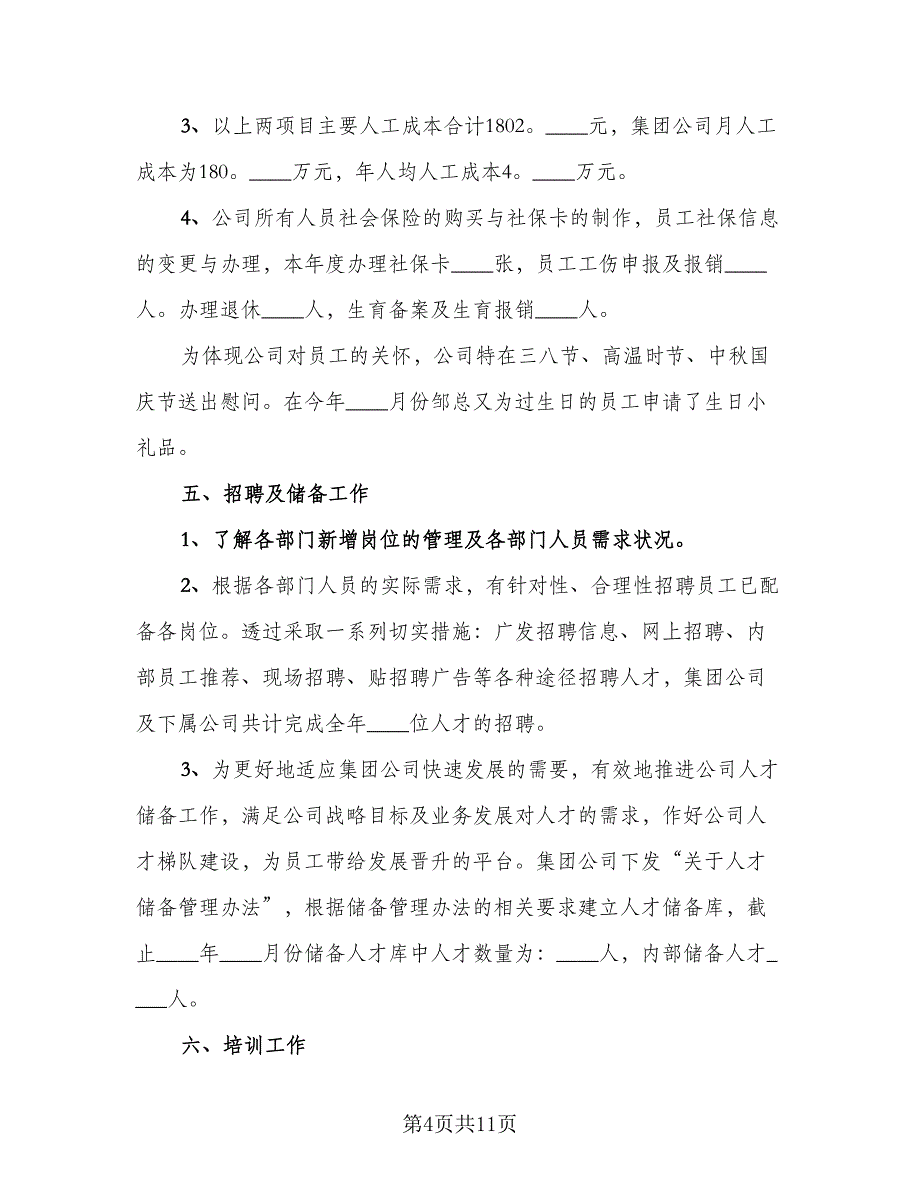 3、以上两项目主要人工成本合计1802。____元，集团公司月人工
成本为180。____万元，年人均人工成本4。____万元。
4、公司所有人员社会保险的购买与社保卡的制作，员工社保信息
的变更与办理，本年度办理社保卡____张，员工工伤申报及报销____
人。办理退休____人，生育备案及生育报销____人。
为体现公司对员工的关怀，公司特在三八节、高温时节、中秋国
庆节送出慰问。在今年____月份邹总又为过生日的员工申请了生日小
礼品。
五、招聘及储备工作
1、了解各部门新增岗位的管理及各部门人员需求状况。
2、根据各部门人员的实际需求，有针对性、合理性招聘员工已配
备各岗位。透过采取一系列切实措施：广发招聘信息、网上招聘、内
部员工推荐、现场招聘、贴招聘广告等各种途径招聘人才，集团公司
及下属公司共计完成全年____位人才的招聘。
3、为更好地适应集团公司快速发展的需要，有效地推进公司人才
储备工作，满足公司战略目标及业务发展对人才的需求，作好公司人
才梯队建设，为员工带给发展晋升的平台。集团公司下发“关于人才
储备管理办法”，根据储备管理办法的相关要求建立人才储备库，截
止____年____月份储备人才库中人才数量为：____人，内部储备人才_
___人。
六、培训工作
第4页共11页